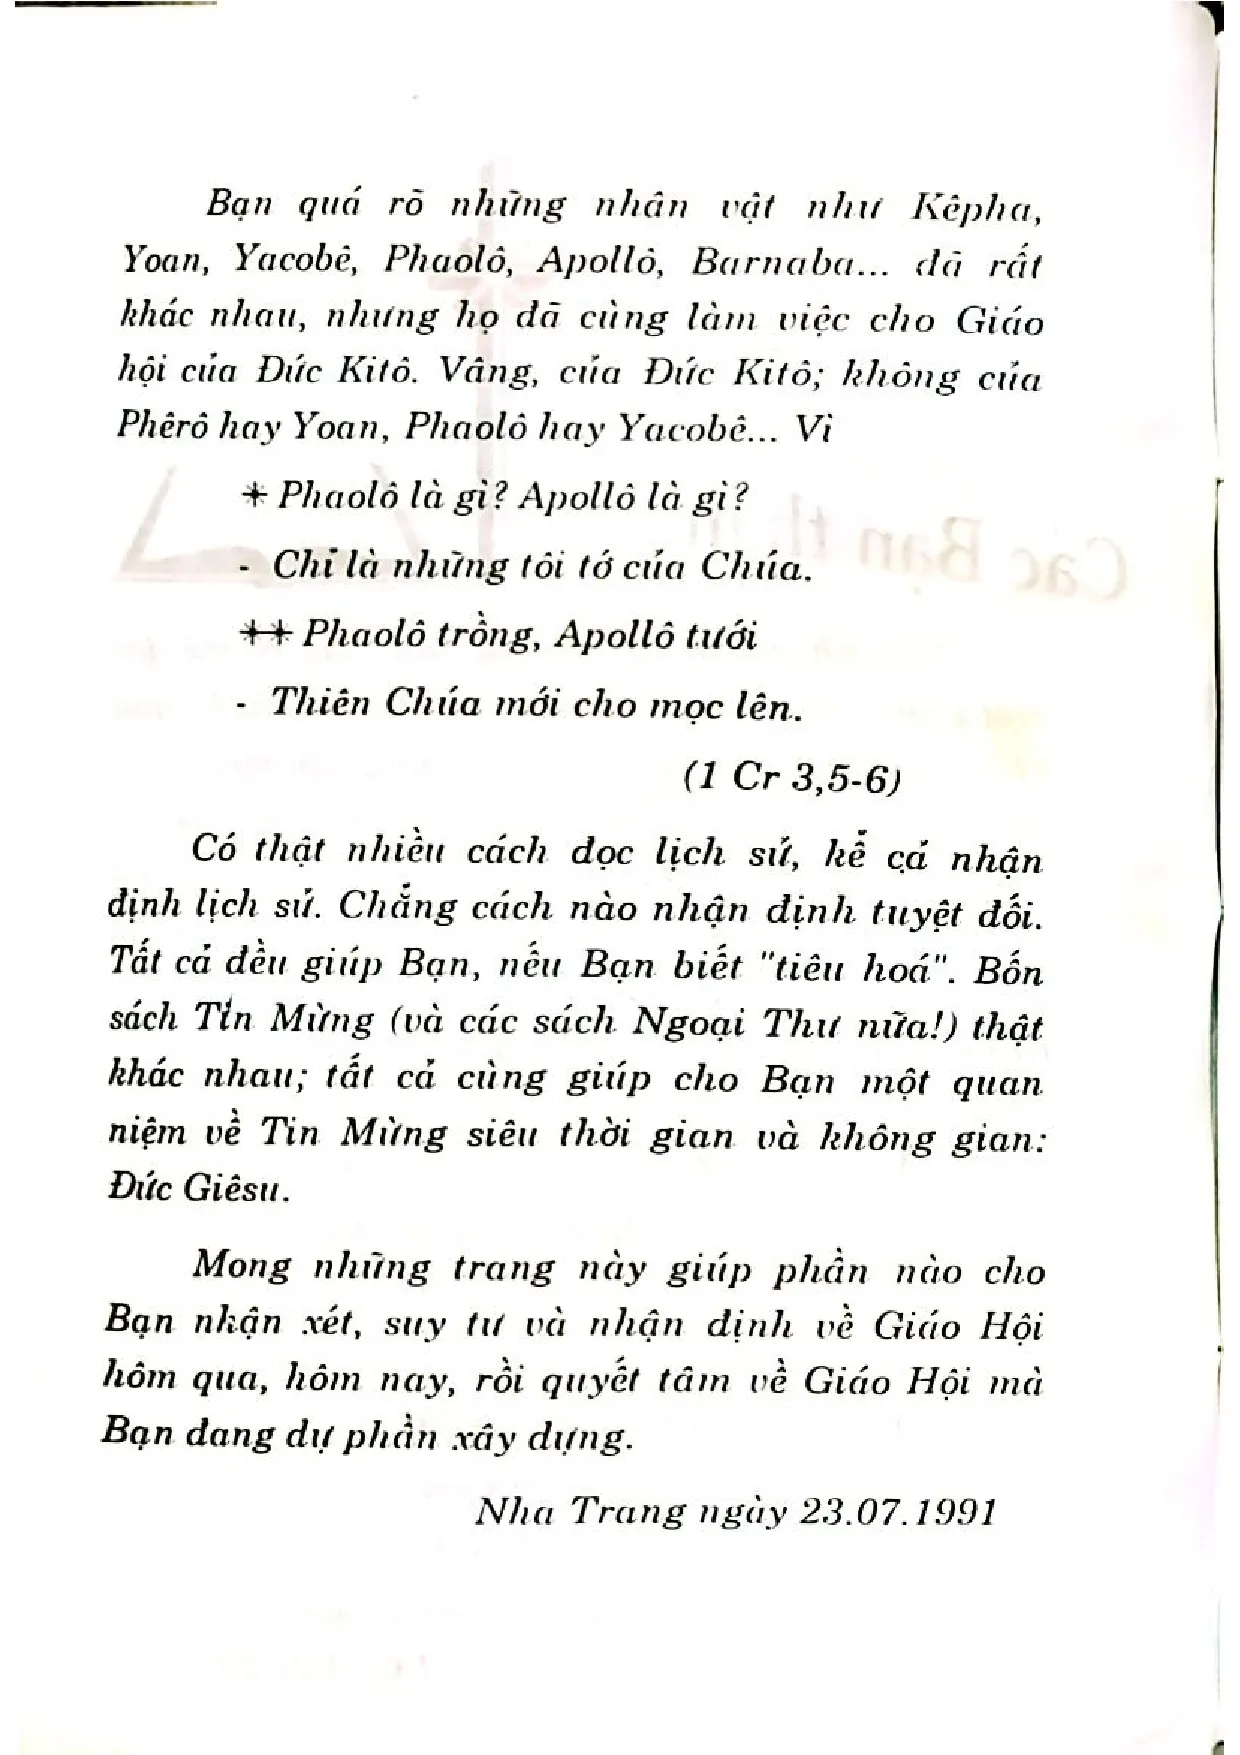 Bạn quá rõ những nhân vật như Kêpha,
Yoan, Yacobê, Phaolô, Apollô, Barnaba... đã rất
khác nhau, nhưng họ đã cùng làm việc cho Giáo
hội của Đức Kitô. Vâng, của Đức Kitô; không của
Phêrô hay Yoan, Phaolô hay Yacobê... Vì
* Phaolô là gì? Apollô là gì?
- Chỉ là những tôi tớ của Chúa.
** Phaolô trồng, Apollô tưới
- Thiên Chúa mới cho mọc lên.
(1 Cr 3,5-6)
Có thật nhiều cách đọc lịch sử, kể cả nhận
định lịch sử. Chẳng cách nào nhận định tuyệt đối.
Tất cả đều giúp Bạn, nếu Bạn biết "tiêu hoá". Bốn
sách Tin Mừng (và các sách Ngoại Thư nữa!) thật
khác nhau; tất cả cùng giúp cho Bạn một quan
niệm về Tin Mừng siêu thời gian và không gian:
Đức Giêsu.
Mong những trang này giúp phần nào cho
Bạn nhận xét, suy tư và nhận định về Giáo Hội
hôm qua, hôm nay, rồi quyết tâm về Giáo Hội mà
Bạn đang dự phần xây dựng.
Nha Trang ngày 23.07.1991